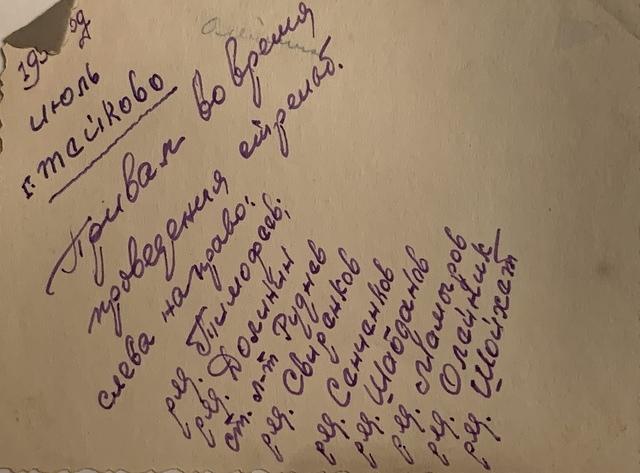 июль
г. Тейково
Привал во время
проведения стрельб.
слева направо:
ряд. Тимофеев;
ряд. Долинин
ст. л-т Руднев
ряд. Свиренков
ряд. Санчанков
ряд. Шабданов
ряд. Мамыров
ряд. Олейник
ряд. Шойхет